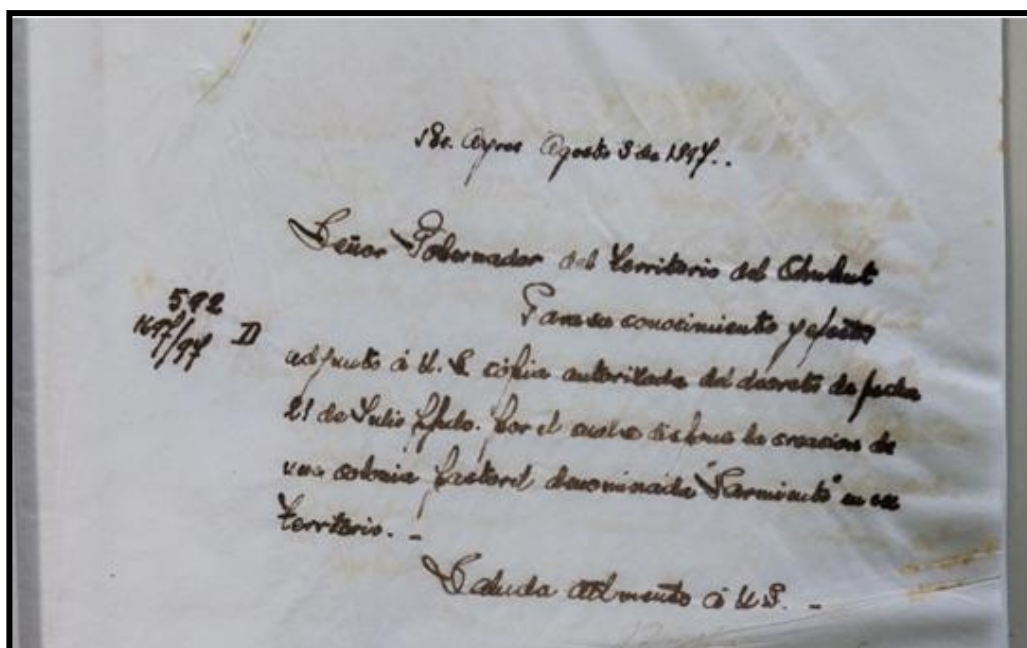 Bs. Ayres Agosto 3 de 1897..
Señor Gobernador del Territorio del Chubut
Para su conocimiento y efectos
592
1697/97 D
adjunto á U. S. cópia autorizada del decreto de fecha
21 de Julio ppdo. por el cual se dispone la creacion de
una colonia pastoril denominada "Sarmiento" en ese
Territorio. _
Saluda atte á U. S. _